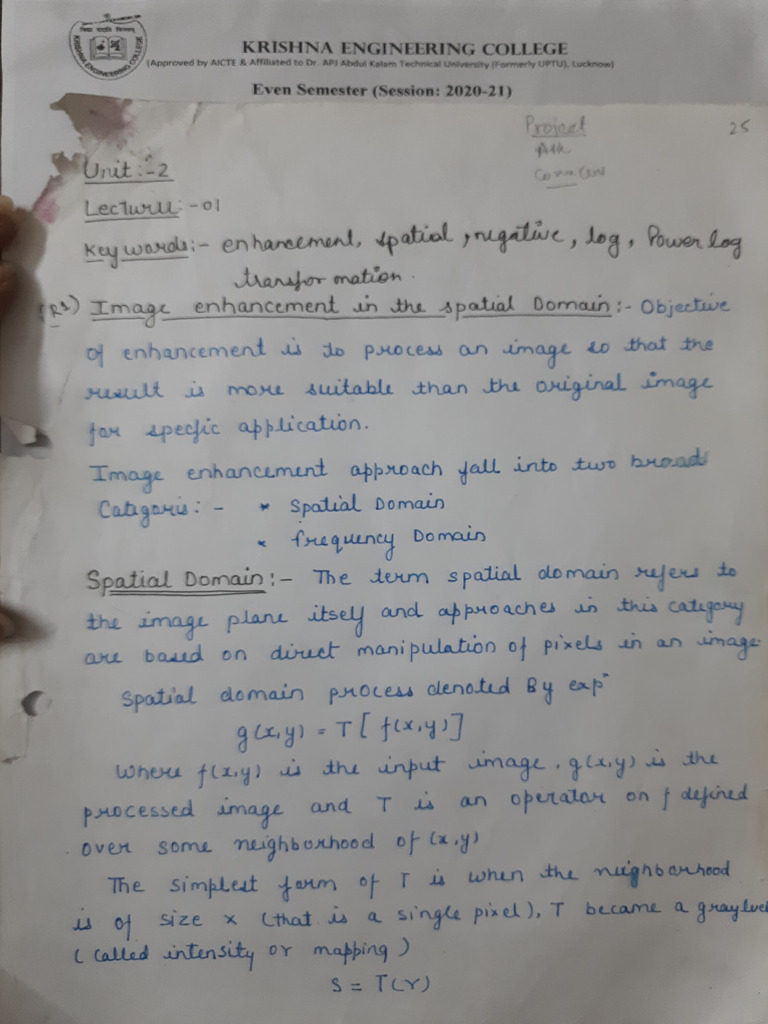 KRISHNA ENGINEERING COLLEGE
(Approved by AICTE & Affiliated to Dr. APJ Abdul Kalam Technical University (Formerly UPTU), Lucknow)
Even Semester (Session: 2020-21)
Project
25
Unit :- 2
Lecture :- 01
Key words :- enhancement, spatial, negative, log, Power log
transformation.
Image enhancement in the spatial Domain :- Objective
of enhancement is to process an image so that the
result is more suitable than the original image
for specfic application.
Image enhancement approach fall into two broad
Categoris : - * Spatial Domain
* frequency Domain
Spatial Domain :- The term spatial domain refers to
the image plane itself and approaches in this category
are based on direct manipulation of pixels in an image
Spatial domain process denoted By expⁿ
g(x,y) = T[f(x,y)]
Where f(x,y) is the input image. g(x,y) is the
processed image and T is an operator on f defined
over some neighborhood of (x,y)
The simplest form of T is when the neighborhood
is of size x (that is a single pixel), T became a graylevel
(called intensity or mapping)
S = T(r)